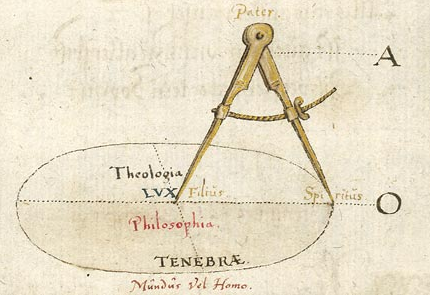 Pater.
A
Theologia
LVX Filiûs Spiritûs O
Philosophia.
TENEBRÆ.
Mûndûs Vel Homo.